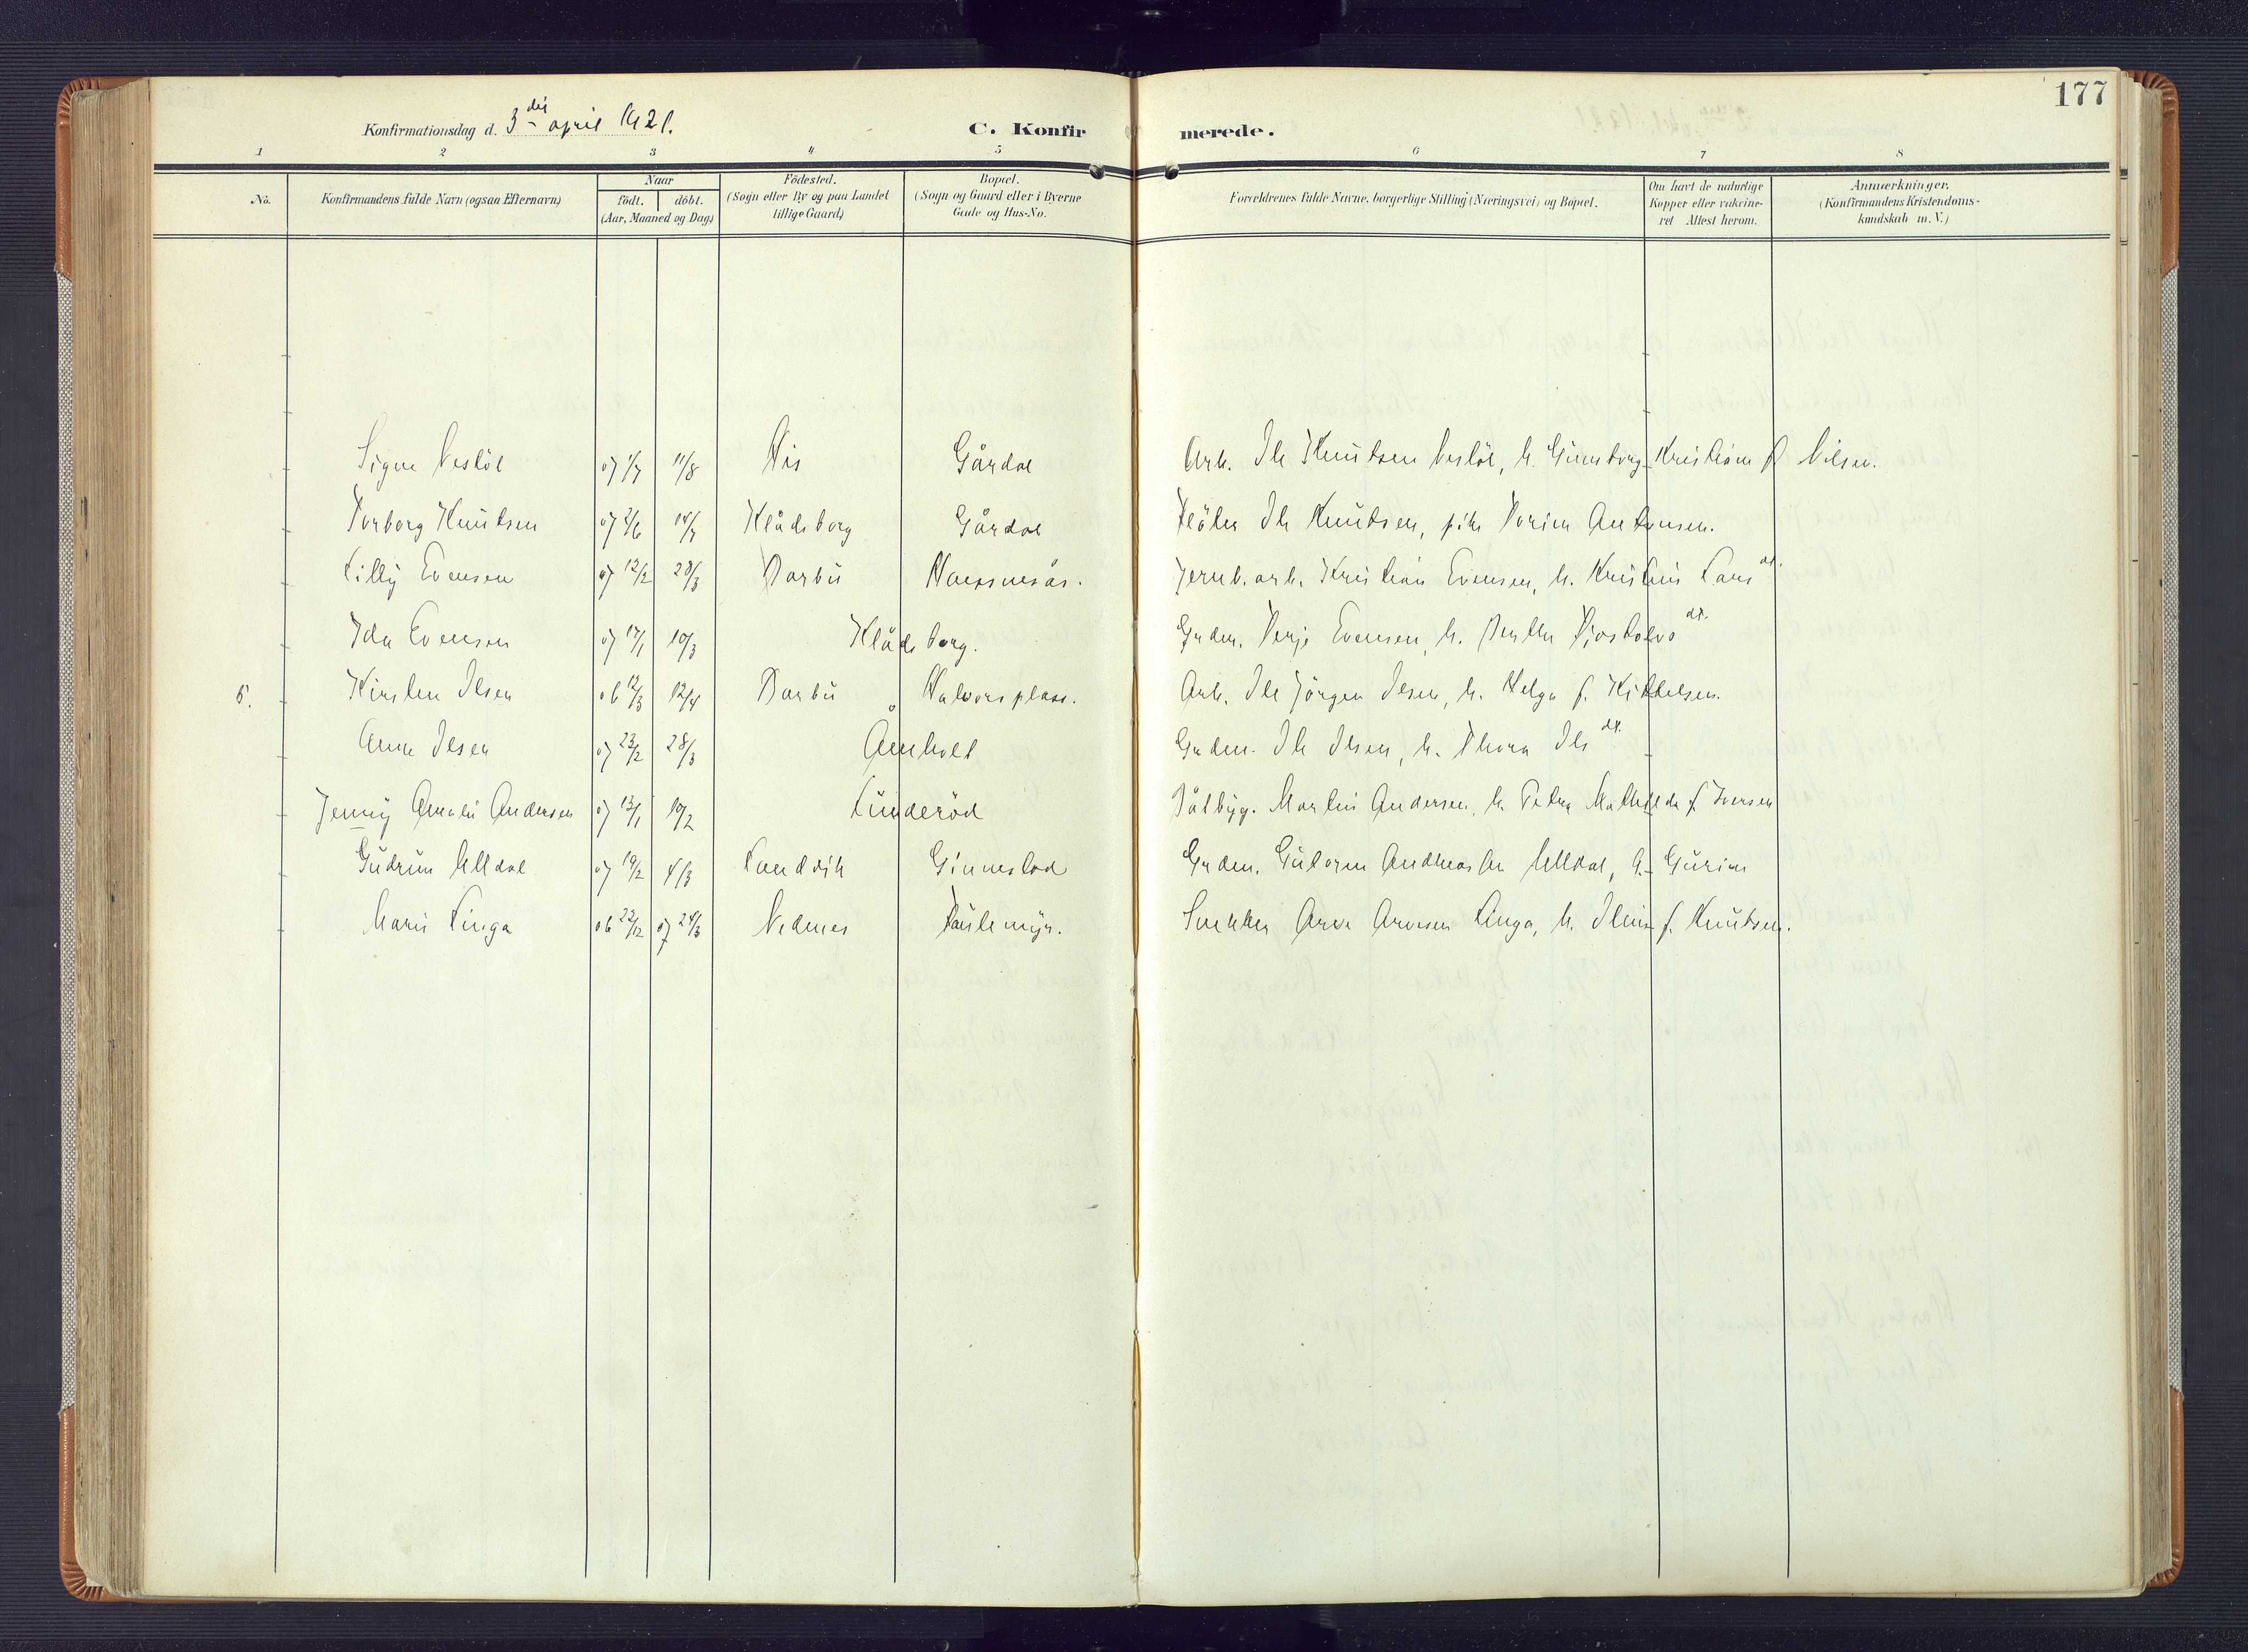 177
Konfirmationsdag d. 3die april 1921.
C. Konfirmerede.
1 2 3 4 5 6 7 8
No.
Konfirmandens fulde Navn (ogsaa Efternavn)
Naar
födt. döbt.
(Aar, Maaned og Dag)
Födested.
(Sogn eller By og paa Landet
tillige Gaard)
Bopæl.
(Sogn og Gaard eller i Byerne
Gade og Hus-No.
Forældrenes fulde Navne, borgerlige Stilling (Næringsvei) og Bopæl.
Om havt de naturlige
Kopper eller vakcine-
ret Attest herom.
Anmærkninger.
(Konfirmandens Kristendoms-
kundskab m. V.)
Signe Vestöl 07 1/7 11/8 His Gårdal Arb. Ole Knutsen Vestöl, h. Gunborg Kristiane f. Nilsen.
Torborg Knutsen 07 2/6 14/7 Klådeborg Gårdal Ole Knutsen, pike Torine Antonsen.
Lilly Evensen 07 12/2 28/3 Barbu Jernb.arb. Kristian Evensen, h. Lars dt.
Ida Evensen 07 17/1 10/3 Klådeborg. Grdm. Terje Evensen, h. Berthe dt.
5. Kirsten Olsen 06 12/3 12/4 Barbu Halvorsplass. Arb. Ole Jörgen Olsen, h. Helga f. Kittelsen.
Anne Olsen 07 23/2 28/3 Amholt Grdm. Ole Olsen, h. Thora Ols dt.
Jenny Amalie Andersen 07 13/1 10/2 Lunderöd Båtbyg. Martin Andersen, h. Petra Mathilde f. Iversen
Gudrun Ulldal 07 19/2 4/3 Landvik Ginnestad Grdm. Gutorm Andreassen Ulldal, h. Gurine
Marie Linga 06 22/12 07 24/3 Nedenes Snekker Arve Arvesen Linga, h. f. Knutsen.